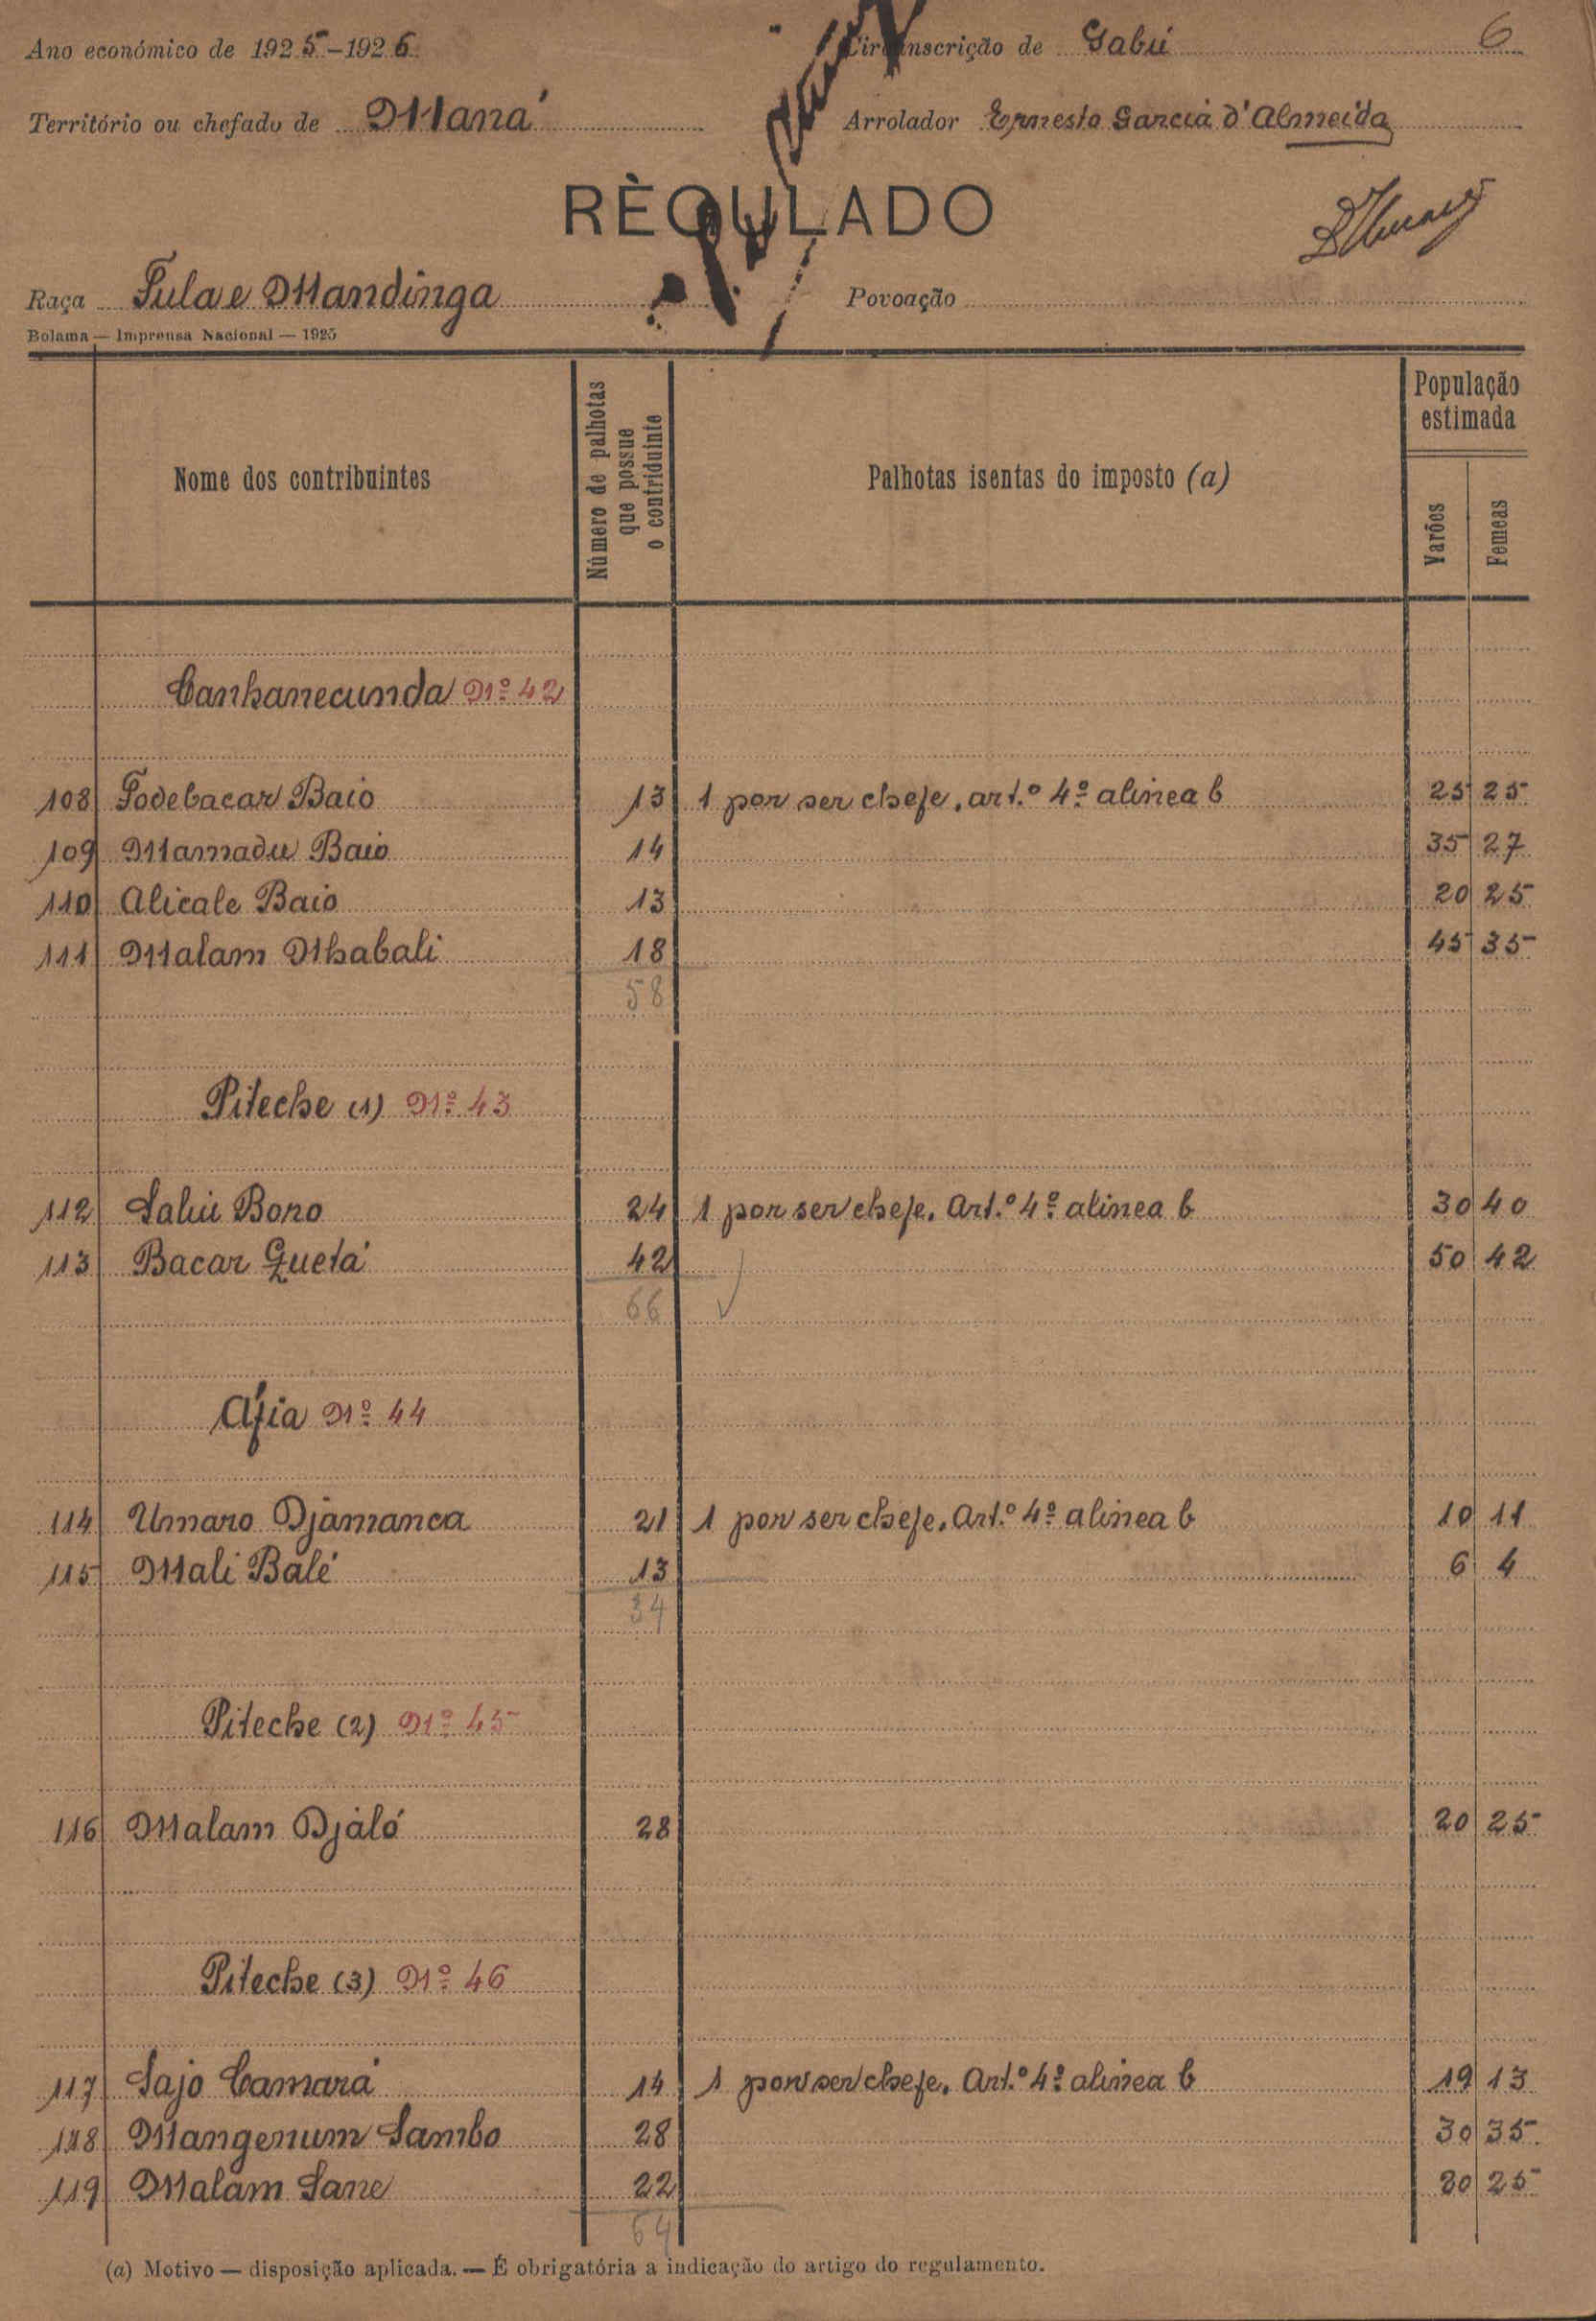 Ano económico de 1925-1926
Circunscrição de Gabú 6
Território ou chefado de Maná
Arrolador Ernesto Garcia d'Almeida
RÈGULADO
Raça Fula e Mandinga
Povoação
Bolama — Imprensa Nacional — 1925
Nome dos contribuintes
Número de palhotas que possue o contriduinte
Palhotas isentas do imposto (a)
População estimada
Varões
Femeas
Canhanecunda Nº 42
108 Fodebacar Baio 13 1 por ser chefe, art.º 4º alinea b 25 25
109 Mamadu Baio 14 35 27
110 Alicale Baio 13 20 25
111 Malam Mhabali 18 45 35
58
Piteche (1) Nº 43
112 Saliu Bono 24 1 por ser chefe. Art.º 4º alinea b 30 40
113 Bacar Quetá 42 50 42
66
Áfia Nº 44
114 Umaro Djamanca 21 1 por ser chefe. Art.º 4º alinea b 10 11
115 Mali Balé 13 6 4
34
Piteche (2) Nº 45
116 Malam Djáló 28 20 25
Piteche (3) Nº 46
117 Sajo Camará 14 1 por ser chefe. Art.º 4º alinea b 19 13
118 Mangenum Sambo 28 30 35
119 Malam Sane 22 20 25
64
(a) Motivo — disposição aplicada. — É obrigatória a indicação do artigo do regulamento.